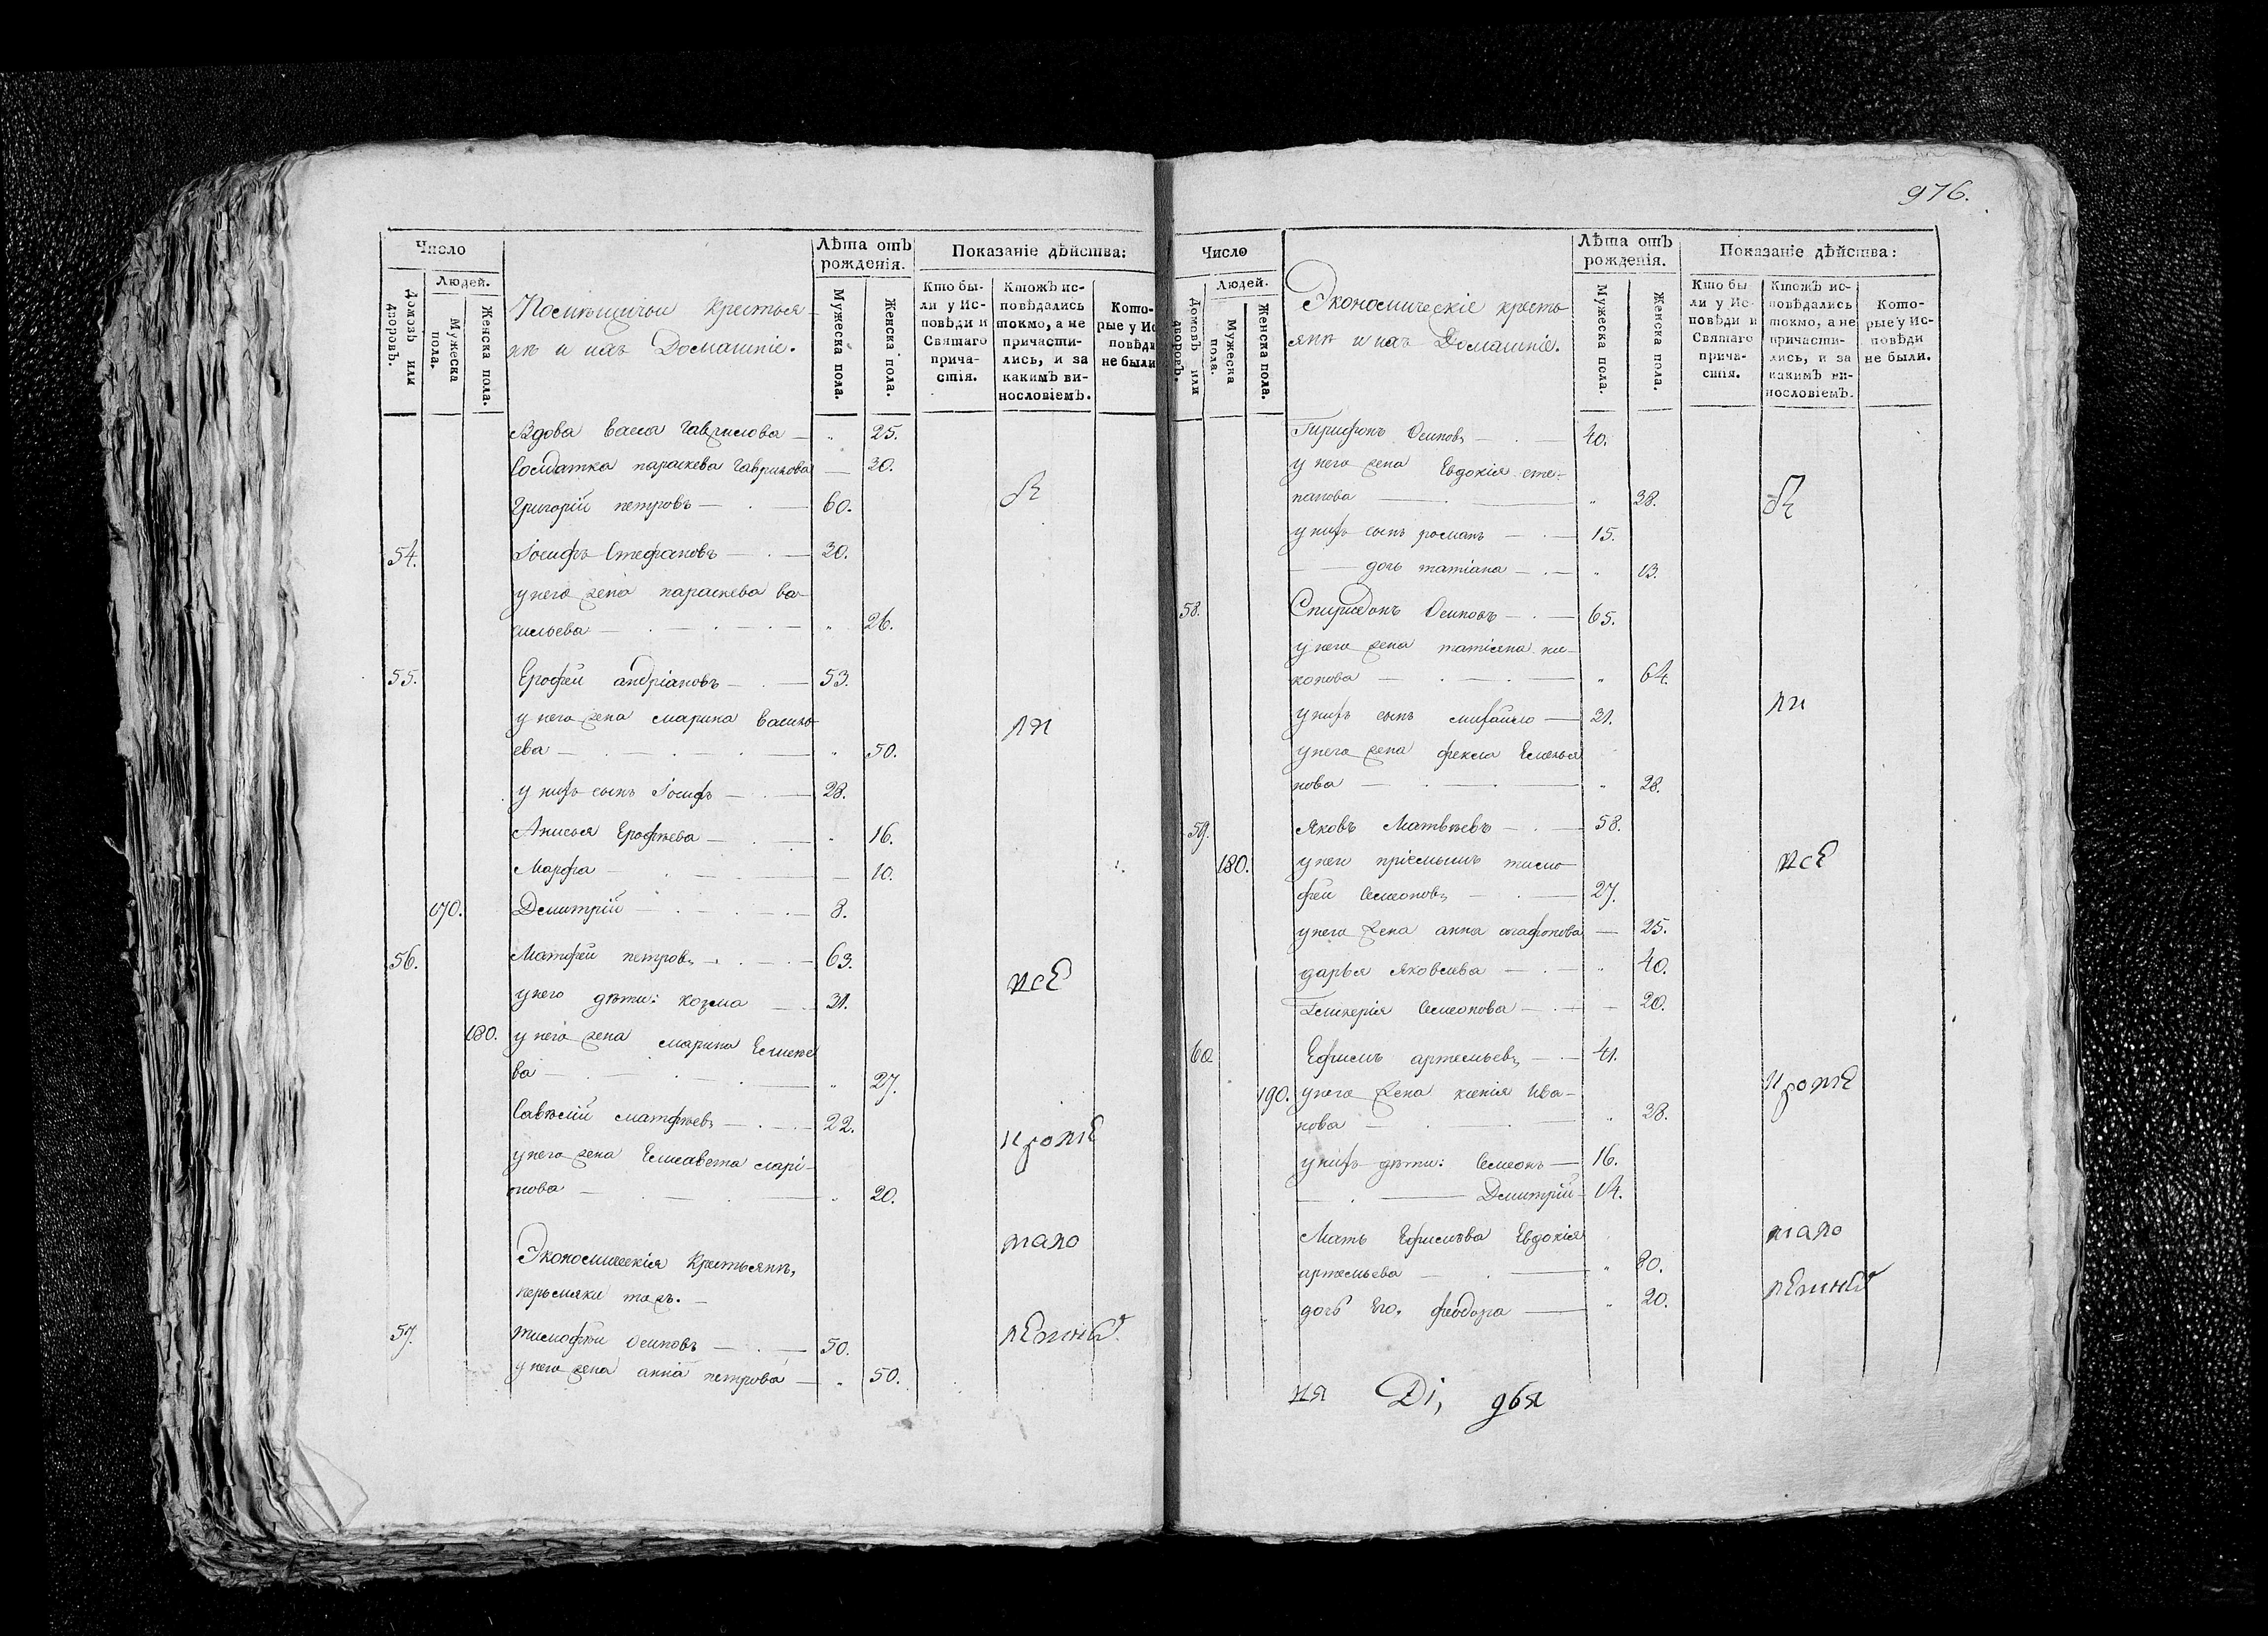 Число
Людей.
Домовъ или дворовъ.
Мужеска пола.
Женска пола.
Помѣщичьи крестья-
нѣ и ихъ Домашніе.
Лѣта отъ
рожденія.
Мужеска пола.
Женска пола.
Показаніе дѣйства:
Кто бы-
ли у Ис-
повѣди и
Святаго
прича-
стія.
Ктожъ ис-
повѣдались
токмо, а не
причасти-
лись, и за
какимъ ви-
нословіемъ.
Кото-
рые у Ис
повѣди
не были
Вдова Васса Гаврилова — „ 25.
Солдатка параскева Гаврилова — 30.
Григорій петровъ — 60.
54. Іосифъ Стефановъ — 30.
у него жена параскева ва-
сильева — „ 26.
55. Ерофей андріановъ — 53.
у него жена марина василь-
ева — „ 50.
у нихъ сынъ Іосифъ — 28.
Анисья Ерофѣева — „ 16.
Марфа — 10.
170. Димитрій — 8.
56. Матфей петровъ — 63.
у него дѣти: козма — 31.
180. у него жена марина
ва — „ 27.
Савелій матфѣевъ — 22.
у него жена Елисавета сарі-
нова — „ 20.
Экономическія крестьянѣ,
57. тимофей осиповъ — 50.
у него жена анна петрова — „ 50.
976.
Число
Людей.
Домовъ или дворовъ.
Мужеска пола.
Женска пола.
Экономическіе кресть-
янѣ и ихъ Домашніе.
Лѣта отъ
рожденія.
Мужеска пола.
Женска пола.
Показаніе дѣйства:
Кто бы
ли у Ис-
повѣди и
Святаго
прича-
стія.
Ктожъ ис-
повѣдались
токмо, а не
причасти-
лись, и за
какимъ ви-
нословіемъ.
Кото-
рые у Ис-
повѣди
не были.
Осиповъ — 40.
у него жена Евдокія сте-
панова — „ 38.
у нихъ сынъ романъ — 15.
— дочь татіана — „ 13.
58. Спиридонъ Осиповъ — 65.
у него жена татіана ни-
конова — „ 64.
у нихъ сынъ михайло — 31.
у него жена фекла Емелья
нова — „ 28.
59. Яковъ Матвѣевъ — 58.
180. у него пріемышъ тимо
фей Семеоновъ — 27.
у него жена анна агафонова — 25.
дарья Яковлева — „ 40.
Гликерія Семеонова — 20.
60. Ефимъ артемьевъ — 41.
190. у него жена ксенія Ива-
нова — „ 38.
у нихъ дѣти: Семеонъ — 16.
— Димитрій — 14.
Мать Ефимова Евдокія
артемьева — „ 80.
дочь Его, феодора — „ 20.